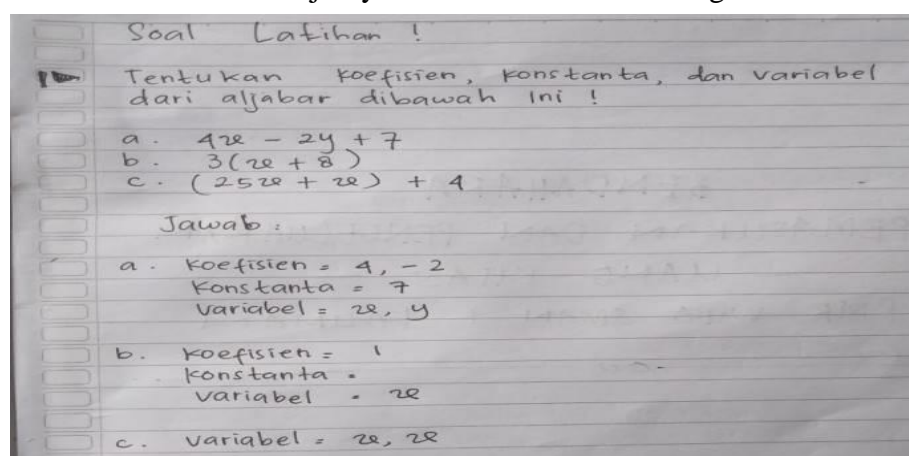 Soal Latihan !
1. Tentukan koefisien, konstanta, dan variabel
dari aljabar dibawah ini !
a. 4x - 2y + 7
b. 3(x + 8)
c. (25x + x) + 4
Jawab :
a. koefisien = 4, -2
konstanta = 7
variabel = x, y
b. koefisien = 1
konstanta =
variabel = x
c. variabel = x, x